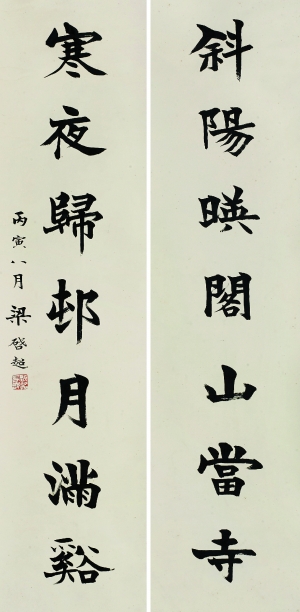 斜陽暎閣山當寺
寒夜歸邨月滿谿
丙寅八月梁啓超